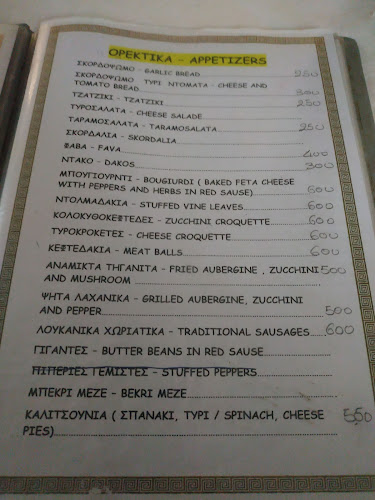 ΟΡΕΚΤΙΚΑ – APPETIZERS
ΣΚΟΡΔΟΨΩΜΟ – GARLIC BREAD
ΣΚΟΡΔΟΨΩΜΟ ΤΥΡΙ ΝΤΟΜΑΤΑ – CHEESE AND
TOMATO BREAD 300
ΤΖΑΤΖΙΚΙ – TZATZIKI 250
ΤΥΡΟΣΑΛΑΤΑ – CHEESE SALADE
ΤΑΡΑΜΟΣΑΛΑΤΑ – TARAMOSALATA 250
ΣΚΟΡΔΑΛΙΑ – SKORDALIA
ΦΑΒΑ – FAVA 400
ΝΤΑΚΟ – DAKOS 300
ΜΠΟΥΓΙΟΥΡΝΤΙ – BOUGIURDI ( BAKED FETA CHEESE
WITH PEPPERS AND HERBS IN RED SAUSE) 600
ΝΤΟΛΜΑΔΑΚΙΑ – STUFFED VINE LEAVES 600
ΚΟΛΟΚΥΘΟΚΕΦΤΕΔΕΣ – ZUCCHINI CROQUETTE 600
ΤΥΡΟΚΡΟΚΕΤΕΣ – CHEESE CROQUETTE 600
ΚΕΦΤΕΔΑΚΙΑ – MEAT BALLS 600
ΑΝΑΜΙΚΤΑ ΤΗΓΑΝΙΤΑ – FRIED AUBERGINE , ZUCCHINI 500
AND MUSHROOM
ΨΗΤΑ ΛΑΧΑΝΙΚΑ – GRILLED AUBERGINE, ZUCCINI
AND PEPPER 500
ΛΟΥΚΑΝΙΚΑ ΧΩΡΙΑΤΙΚΑ – TRADITIONAL SAUSAGES 600
ΓΙΓΑΝΤΕΣ – BUTTER BEANS IN RED SAUSE
ΠΙΠΕΡΙΕΣ ΓΕΜΙΣΤΕΣ – STUFFED PEPPERS
ΜΠΕΚΡΙ ΜΕΖΕ – BEKRI MEZE
ΚΑΛΙΤΣΟΥΝΙΑ ( ΣΠΑΝΑΚΙ, ΤΥΡΙ / SPINACH, CHEESE 550
PIES)